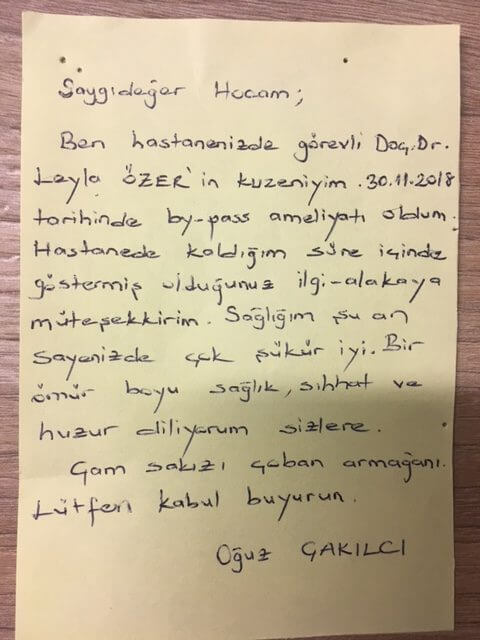 Saygıdeğer Hocam;
Ben hastanenizde görevli Doç.Dr.
Leyla ÖZER'in kuzeniyim. 30.11.2018
tarihinde by-pass ameliyatı oldum.
Hastanede kaldığım süre içinde
göstermiş olduğunuz ilgi-alakaya
müteşekkirim. Sağlığım şu an
sayenizde çok şükür iyi. Bir
ömür boyu sağlık, sıhhat ve
huzur diliyorum sizlere.
Çam sakızı çoban armağanı.
Lütfen kabul buyurun.
Oğuz ÇAKILCI